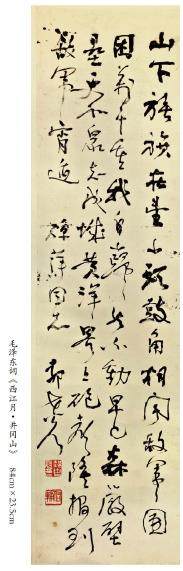 山下旌旗在望山头鼓角相闻敌军围
困万千重我自岿然不动早已森严壁
垒更加众志成城黄洋界上炮声隆报到
敌军宵遁 同志
毛泽东词《西江月·井冈山》 84cm×23.5cm